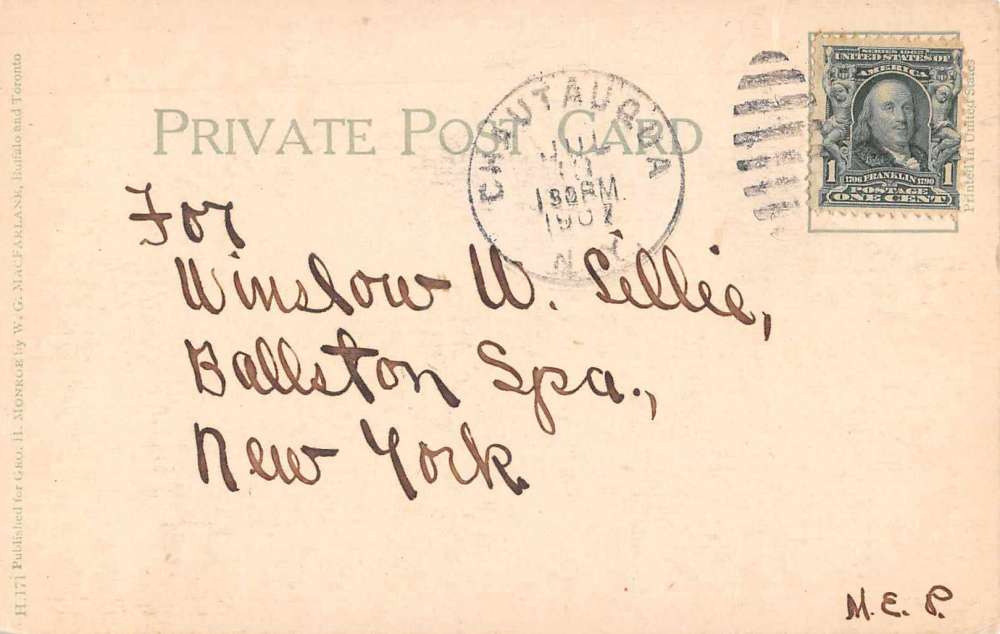 PRIVATE POST CARD
CHAUTAUQUA
JUL
1907
N.Y.
SERIES 1902
UNITED STATES OF
AMERICA
1706 FRANKLIN 1790
1 POSTAGE 1
ONE CENT
Printed in United States
For
Winslow W. Lillie,
Ballston Spa.,
New York.
M. E. P.
H.171 Published for GEO. H. MONROE by W. G. MACFARLANE, Buffalo and Toronto